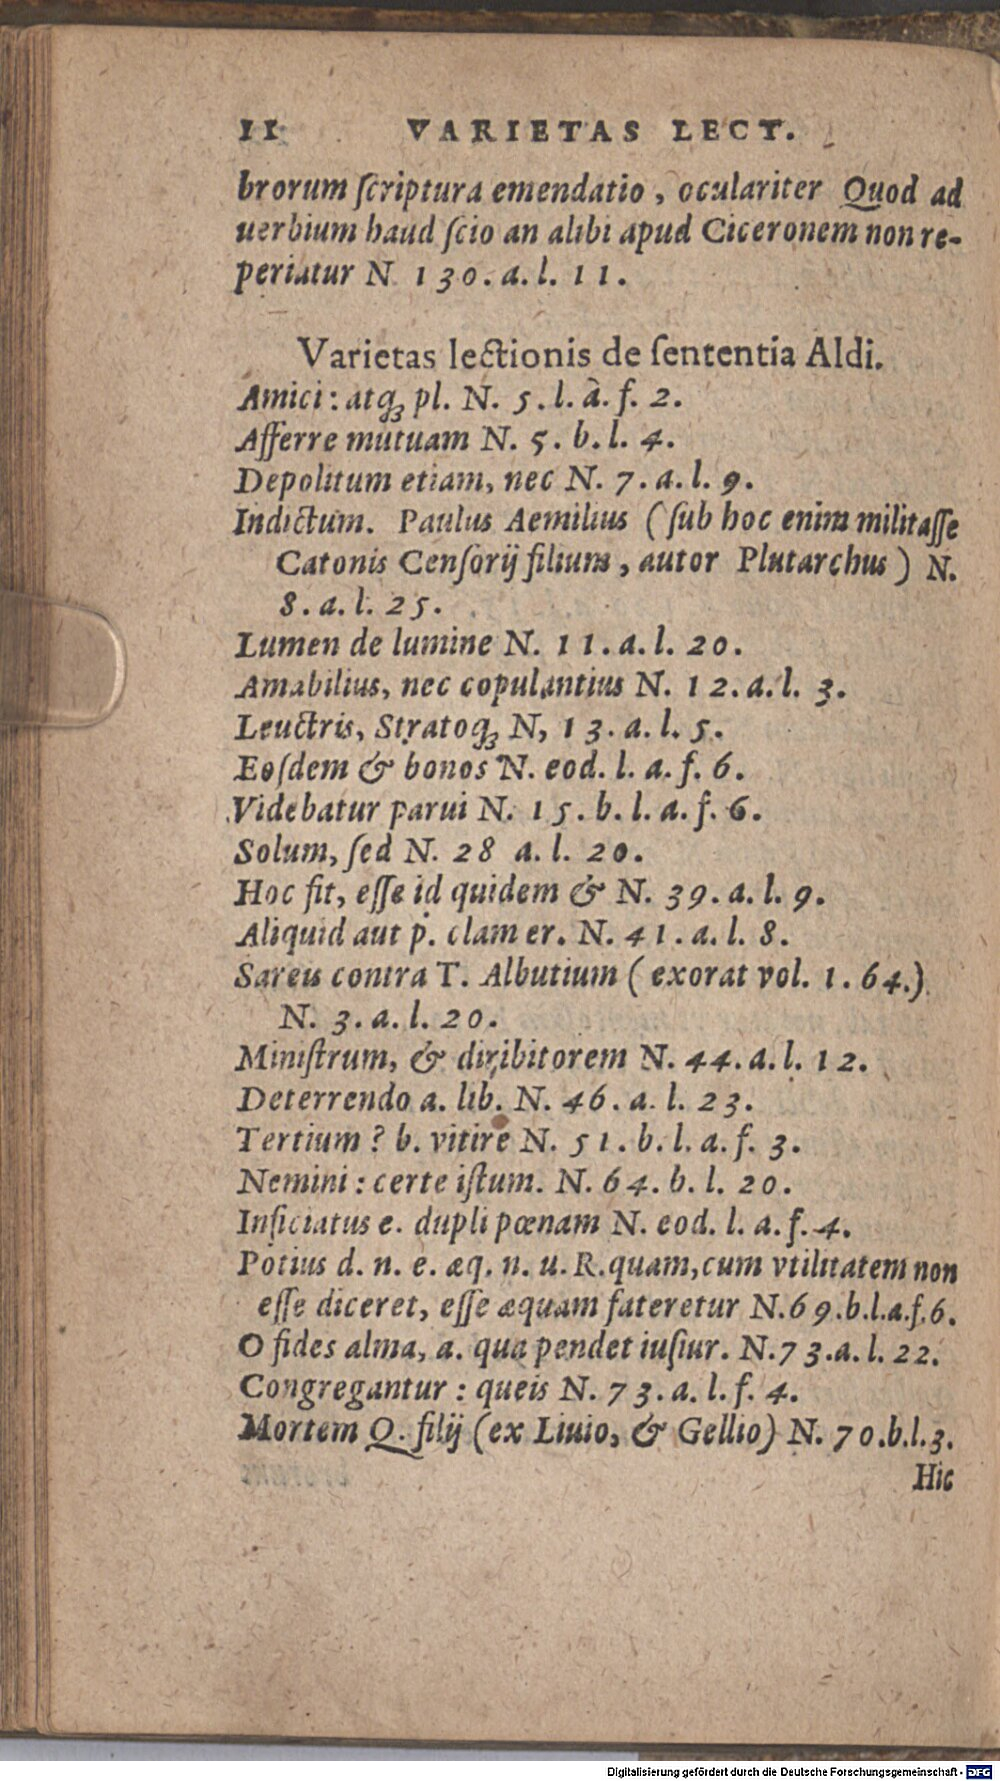 11 VARIETAS LECT.
brorum ſcriptura emendatio, oculariter Quod ad
uerbium haud ſcio an alibi apud Ciceronem non re-
periatur N 130. a. l. 11.
Varietas lectionis de ſententia Aldi.
Amici: atqꝫ pl. N. 5. l. à. f. 2.
Afferre mutuam N. 5. b. l. 4.
Depolitum etiam, nec N. 7. a. l. 9.
Indictum. Paulus Aemilius (ſub hoc enim militaſſe
Catonis Cenſorij filium, autor Plutarchus) N.
8. a. l. 25.
Lumen de lumine N. 11. a. l. 20.
Amabilius, nec copulantius N. 12. a. l. 3.
Leuctris, Stratoqꝫ N, 13. a. l. 5.
Eoſdem & bonos N. eod. l. a. f. 6.
Videbatur parui N. 15. b. l. a. f. 6.
Solum, ſed N. 28 a. l. 20.
Hoc fit, eſſe id quidem & N. 39. a. l. 9.
Aliquid aut p. clam er. N. 41. a. l. 8.
Sareis contra T. Albutium (exorat vol. 1. 64.)
N. 3. a. l. 20.
Miniſtrum, & diribitorem N. 44. a. l. 12.
Deterrendo a. lib. N. 46. a. l. 23.
Tertium? b. vitire N. 51. b. l. a. f. 3.
Nemini: certe iſtum. N. 64. b. l. 20.
Inficiatus e. dupli pœnam N. eod. l. a. f. 4.
Potius d. n. e. æq. n. u. R. quam, cum vtilitatem non
eſſe diceret, eſſe æquam fateretur N. 69. b. l. a. f. 6.
O fides alma, a. qua pendet iuſiur. N. 73. a. l. 22.
Congregantur: queis N. 73. a. l. f. 4.
Mortem Q. filij (ex Liuio, & Gellio) N. 70. b. l. 3.
Hic
Digitalisierung gefördert durch die Deutsche Forschungsgemeinschaft - DFG